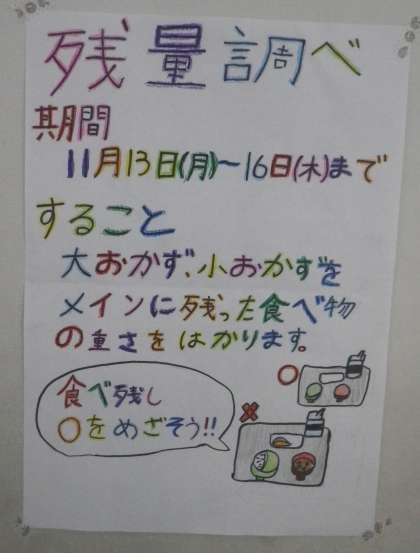 残量調べ
期間
11月13日(月)～16日(木)まで
すること
大おかず、小おかずを
メインに残った食べ物
の重さをはかります。
食べ残し
○をめざそう!!
○
×